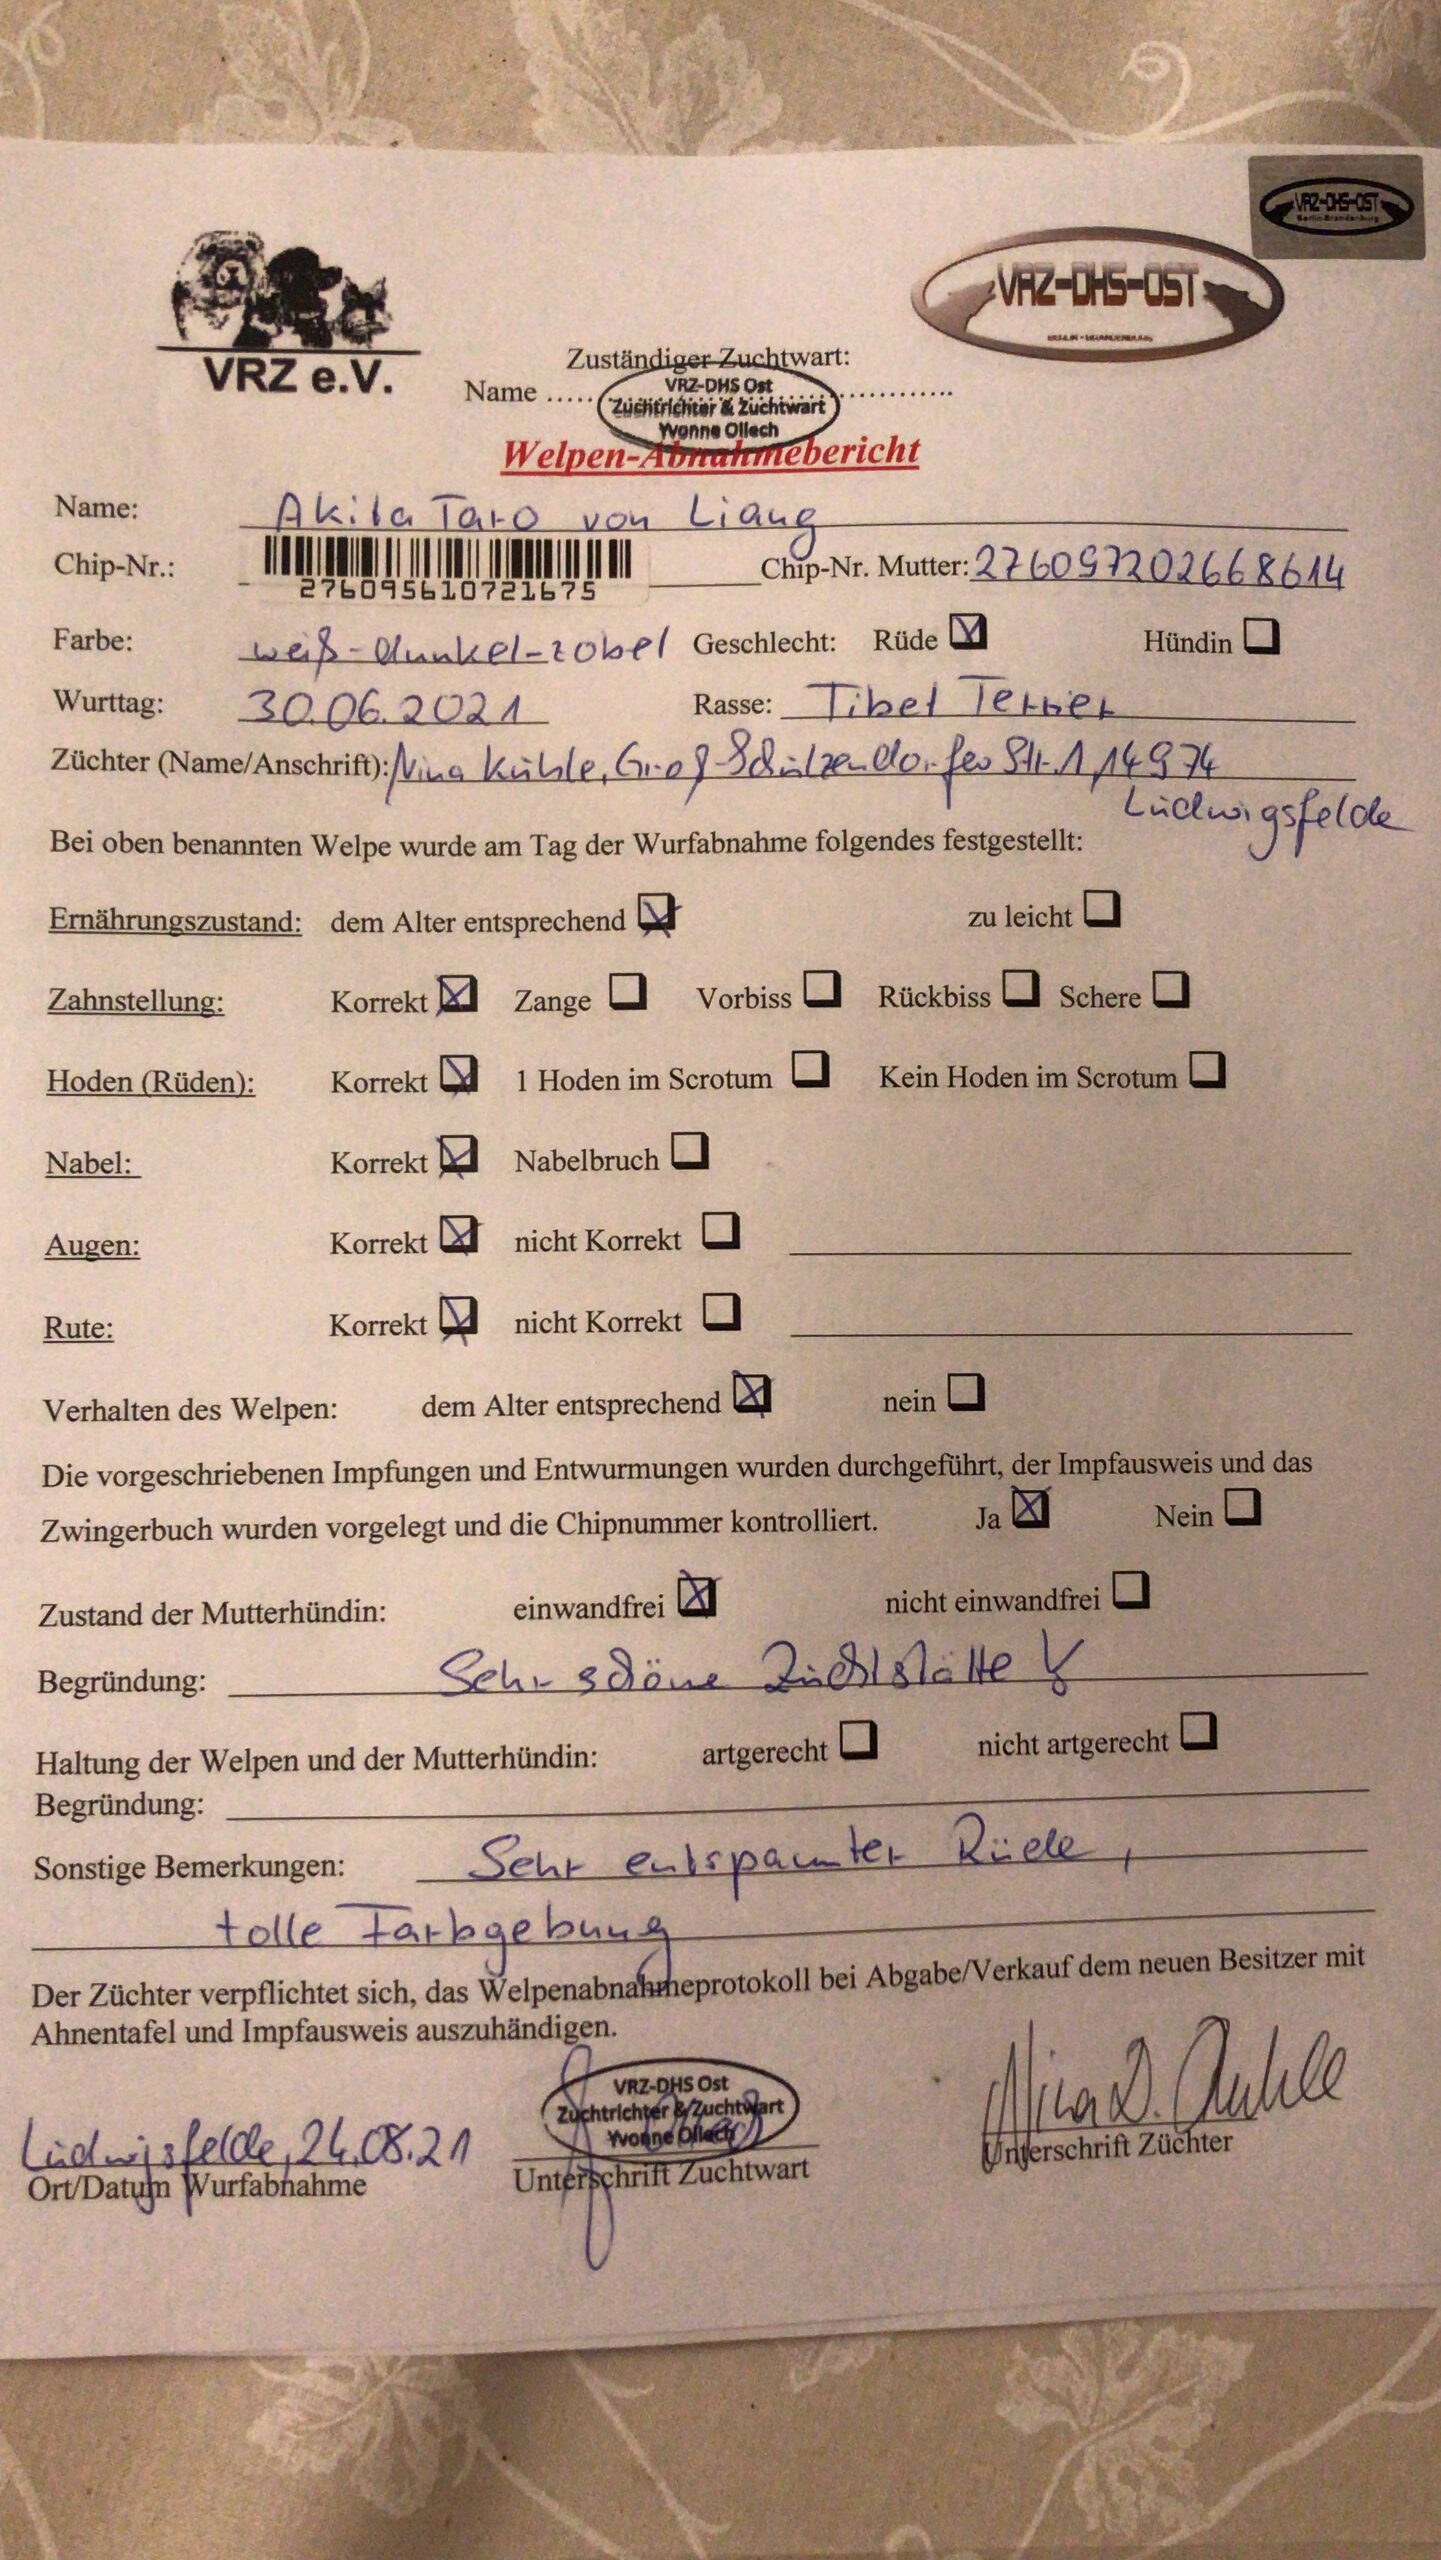 VRZ-DHS-OST
Berlin-Brandenburg
VRZ-DHS-OST
VRZ e.V.
Zuständiger Zuchtwart:
Name ..... ..............
VRZ-DHS Ost
Zuchtrichter & Zuchtwart
Yvonne Ollech
Welpen-Abnahmebericht
Name: Akila Taro von Liang
Chip-Nr.: 276095610721675 Chip-Nr. Mutter: 276097202668614
Farbe: weiß-dunkel-zobel Geschlecht: Rüde ☒ Hündin ☐
Wurttag: 30.06.2021 Rasse: Tibet Terrier
Züchter (Name/Anschrift): Nina Kühle, Groß-Schulzendorfer Str. 1, 14974
Ludwigsfelde
Bei oben benannten Welpe wurde am Tag der Wurfabnahme folgendes festgestellt:
Ernährungszustand: dem Alter entsprechend ☒ zu leicht ☐
Zahnstellung: Korrekt ☒ Zange ☐ Vorbiss ☐ Rückbiss ☐ Schere ☐
Hoden (Rüden): Korrekt ☒ 1 Hoden im Scrotum ☐ Kein Hoden im Scrotum ☐
Nabel: Korrekt ☒ Nabelbruch ☐
Augen: Korrekt ☒ nicht Korrekt ☐
Rute: Korrekt ☒ nicht Korrekt ☐
Verhalten des Welpen: dem Alter entsprechend ☒ nein ☐
Die vorgeschriebenen Impfungen und Entwurmungen wurden durchgeführt, der Impfausweis und das
Zwingerbuch wurden vorgelegt und die Chipnummer kontrolliert. Ja ☒ Nein ☐
Zustand der Mutterhündin: einwandfrei ☒ nicht einwandfrei ☐
Begründung: Sehr schöne Zuchtstätte !
Haltung der Welpen und der Mutterhündin: artgerecht ☐ nicht artgerecht ☐
Begründung:
Sonstige Bemerkungen: Sehr entspannter Rüde,
tolle Farbgebung
Der Züchter verpflichtet sich, das Welpenabnahmeprotokoll bei Abgabe/Verkauf dem neuen Besitzer mit
Ahnentafel und Impfausweis auszuhändigen.
VRZ-DHS Ost
Zuchtrichter & Zuchtwart
Yvonne Ollech
Nina D. Kuhle
Ludwigsfelde, 24.08.21
Ort/Datum Wurfabnahme Unterschrift Zuchtwart Unterschrift Züchter